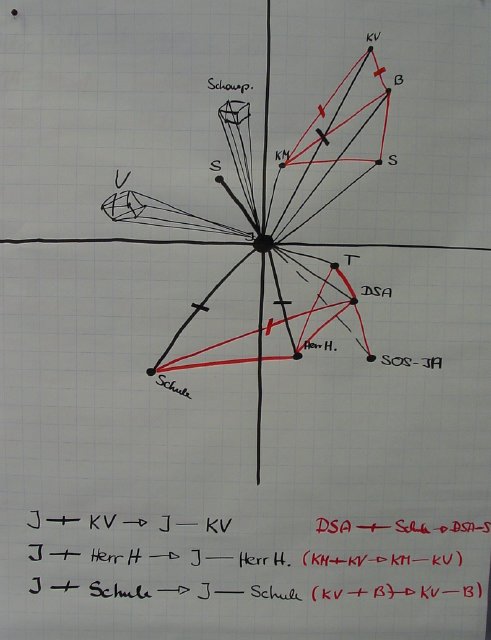 KV
B
Schausp.
KM
S
S
V
J
T
DSA
Herr H.
SOS-JA
Schule
J + KV → J — KV DSA + Schule → DSA-S
J + Herr H → J — Herr H. (KM+KV → KM — KV)
J + Schule → J — Schule (KV + B) → KV — B)